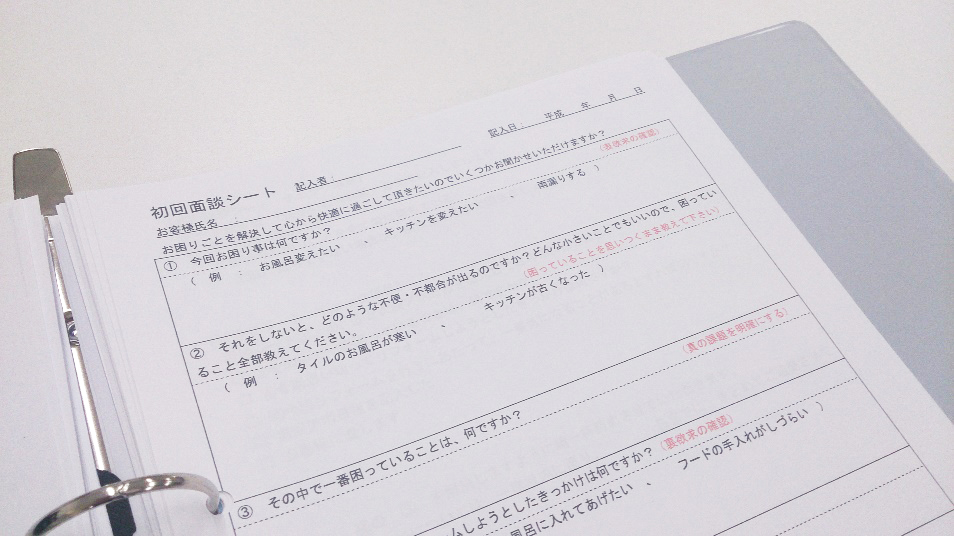 記入日： 平成 年 月 日
初回面談シート 記入者：
お客様氏名 ：
お困りごとを解決して心から快適に過ごして頂きたいのでいくつかお聞かせいただけますか？
① 今回お困り事は何ですか？ （表欲求の確認）
（ 例 ： お風呂変えたい 、 キッチンを変えたい 、 雨漏りする ）
② それをしないと、どのような不便・不都合が出るのですか？どんな小さいことでもいいので、困ってい
ること全部教えてください。 （困っていることを思いつくまま教えて下さい）
（ 例 ： タイルのお風呂が寒い 、 キッチンが古くなった ）
③ その中で一番困っていることは、何ですか？ （真の課題を明確にする）
ムしようとしたきっかけは何ですか？（裏欲求の確認）
風呂に入れてあげたい 、 フードの手入れがしづらい ）